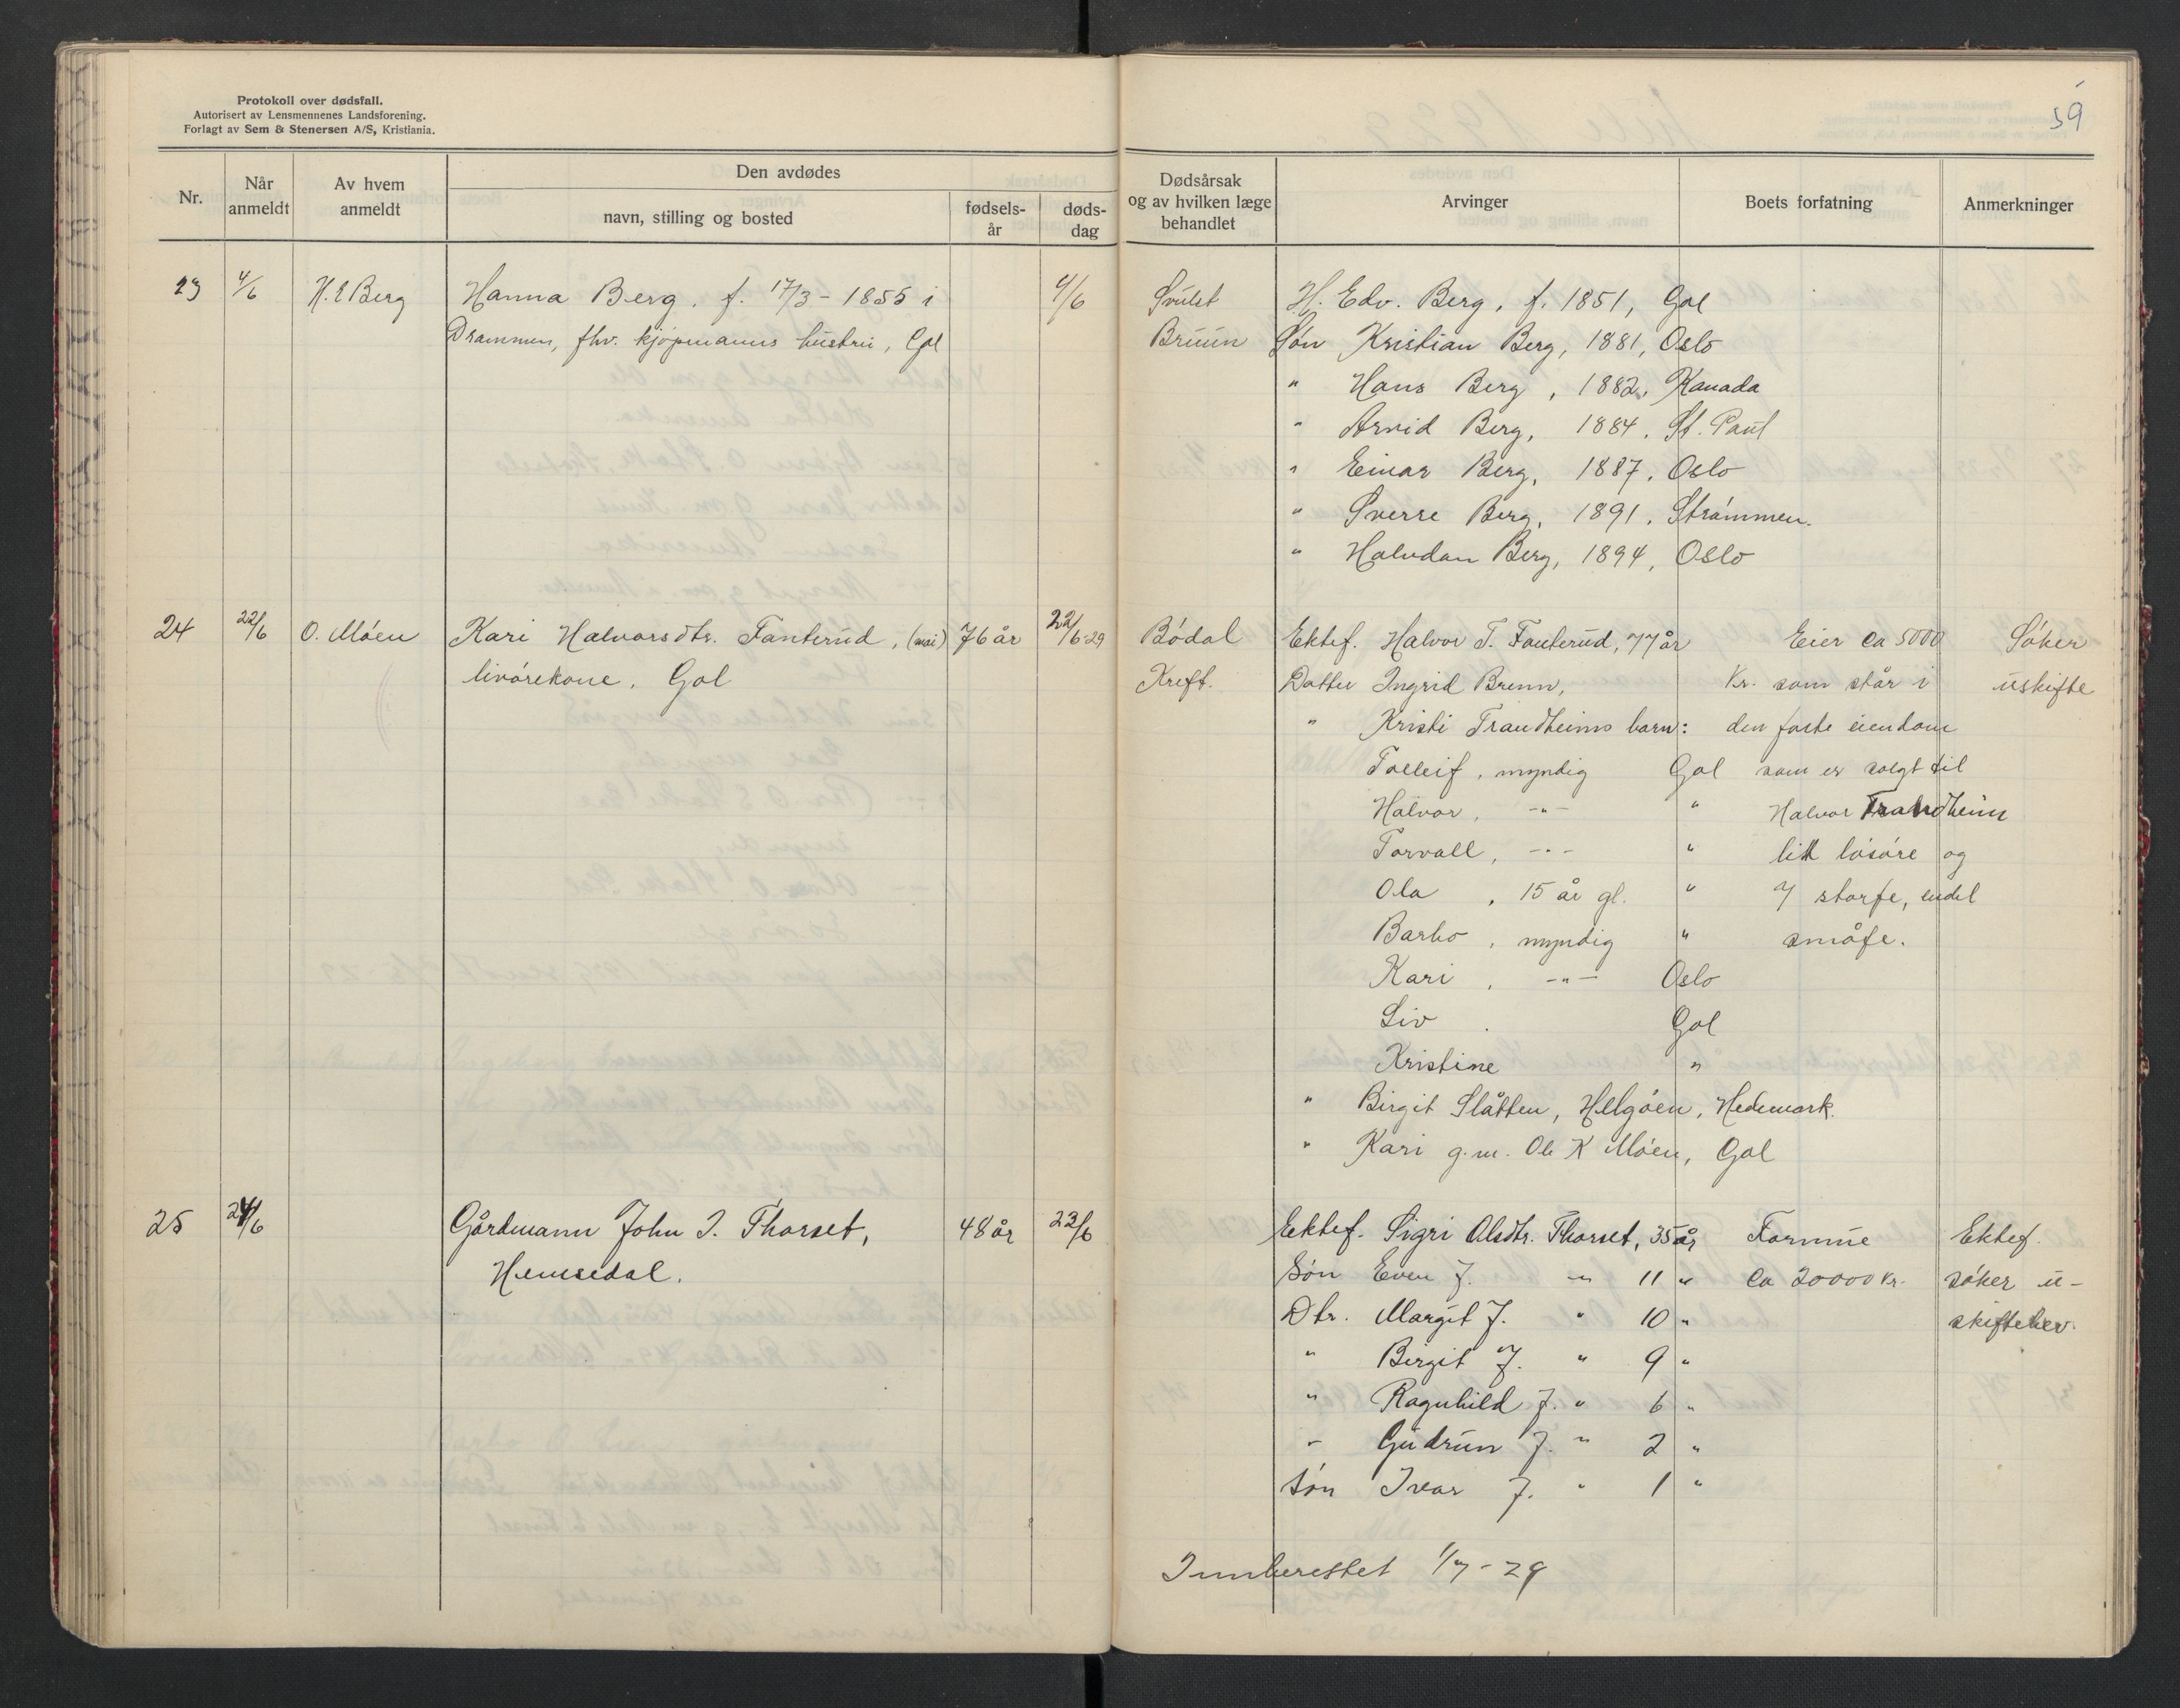 Protokoll over dødsfall.
Autorisert av Lensmennenes Landsforening.
Forlagt av Sem & Stenersen A/S, Kristiania.
59
Nr.
Når anmeldt
Av hvem anmeldt
Den avdødes
navn, stilling og bosted
fødsels-år
døds-dag
Dødsårsak og av hvilken læge behandlet
Arvinger
Boets forfatning
Anmerkninger
23 4/6 H. E Berg Hanna Berg, f. 17/3 - 1855 i 4/6 Svulst H. Edv. Berg, f. 1851, Gol
Drammen, fhv. kjøpmanns hustru, Gol Bruun Søn Kristian Berg, 1881, Oslo
" Hans Berg, 1882, Kanada
" Arvid Berg, 1884, St. Paul
" Einar Berg, 1887, Oslo
" Sverre Berg, 1891, Strømmen.
" Halvdan Berg, 1894, Oslo
24 22/6 O. Møen Kari Halvorsdtr. Fanterud, (mai) 76 år 22/6-29 Bødal Ektef. Halvor T. Fauterud, 77 år Eier ca 5000 Søker
livørekone, Gol Kreft. Datter Ingrid Brenn, Kr. som står i uskifte
" Kristi Trandheims barn: den faste eiendom
Tolleif, myndig Gol som er solgt til
Halvor, -"- " Halvor Trandheim
Torvall, -"- " litt løsøre og
Ola, 15 år gl. " 7 storfe, endel
Barbo, myndig " småfe.
Kari, -"- Oslo
Liv Gol
Kristine "
" Birgit Slåtten, Helgøen, Hedemark.
" Kari g.m. Ole K Møen, Gol
25 24/6 Gårdmann John I. Thorset, 48 år 22/6 Ektef. Sigri Olsdtr. Thorset, 35 år Formue Ektef.
Hemsedal. Søn Even J. " 11 " ca 20000 kr. søker u-
Dtr. Margit J. " 10 " skiftebev.
" Birgit J. " 9 "
" Ragnhild J. " 6 "
" Gudrun J. " 2 "
Søn Ivar J. " 1 "
Innberettet 1/7 - 29